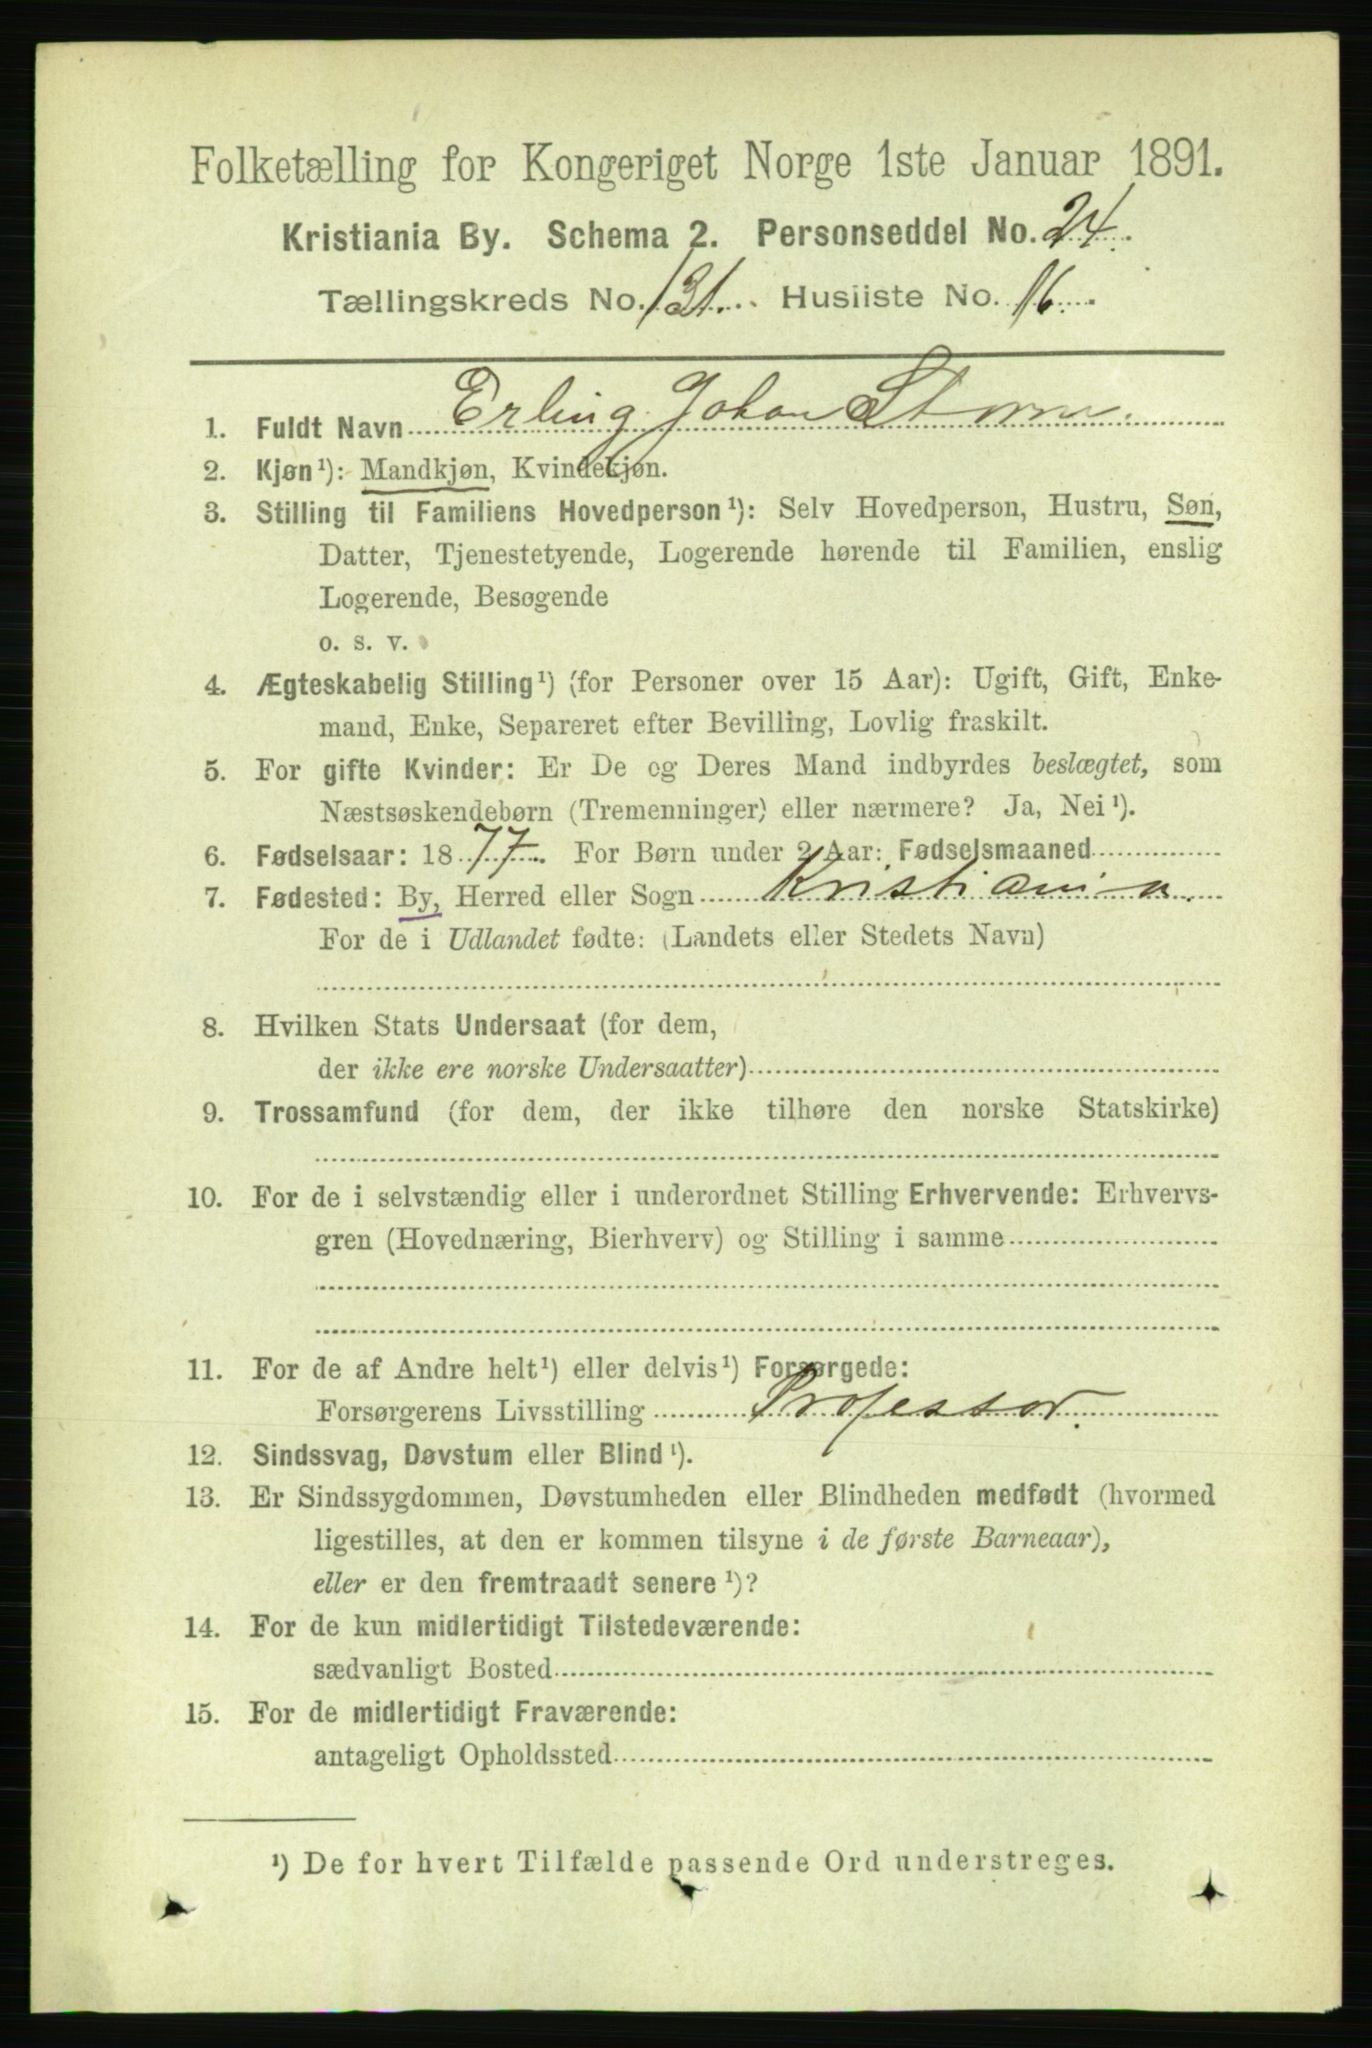 Folketælling for Kongeriget Norge 1ste Januar 1891.
Kristiania By. Schema 2. Personseddel No. 24.
Tællingskreds No. 131. Husliste No. 16.
1. Fuldt Navn Erling Johan Storm.
2. Kjøn¹): Mandkjøn, Kvindekjøn.
3. Stilling til Familiens Hovedperson¹): Selv Hovedperson, Hustru, Søn,
Datter, Tjenestetyende, Logerende hørende til Familien, enslig
Logerende, Besøgende
o. s. v.
4. Ægteskabelig Stilling¹) (for Personer over 15 Aar): Ugift, Gift, Enke-
mand, Enke, Separeret efter Bevilling, Lovlig fraskilt.
5. For gifte Kvinder: Er De og Deres Mand indbyrdes beslægtet, som
Næstsøskendebørn (Tremenninger) eller nærmere? Ja, Nei¹).
6. Fødselsaar: 1877. For Børn under 2 Aar: Fødselsmaaned
7. Fødested: By, Herred eller Sogn Kristiania.
For de i Udlandet fødte: (Landets eller Stedets Navn)
8. Hvilken Stats Undersaat (for dem,
der ikke ere norske Undersaatter)
9. Trossamfund (for dem, der ikke tilhøre den norske Statskirke)
10. For de i selvstændig eller i underordnet Stilling Erhvervende: Erhvervs-
gren (Hovednæring, Bierhverv) og Stilling i samme
11. For de af Andre helt¹) eller delvis¹) Forsørgede:
Forsørgerens Livsstilling Professor.
12. Sindssvag, Døvstum eller Blind¹).
13. Er Sindssygdommen, Døvstumheden eller Blindheden medfødt (hvormed
ligestilles, at den er kommen tilsyne i de første Barneaar),
eller er den fremtraadt senere¹)?
14. For de kun midlertidigt Tilstedeværende:
sædvanligt Bosted
15. For de midlertidigt Fraværende:
antageligt Opholdssted
¹) De for hvert Tilfælde passende Ord understreges.